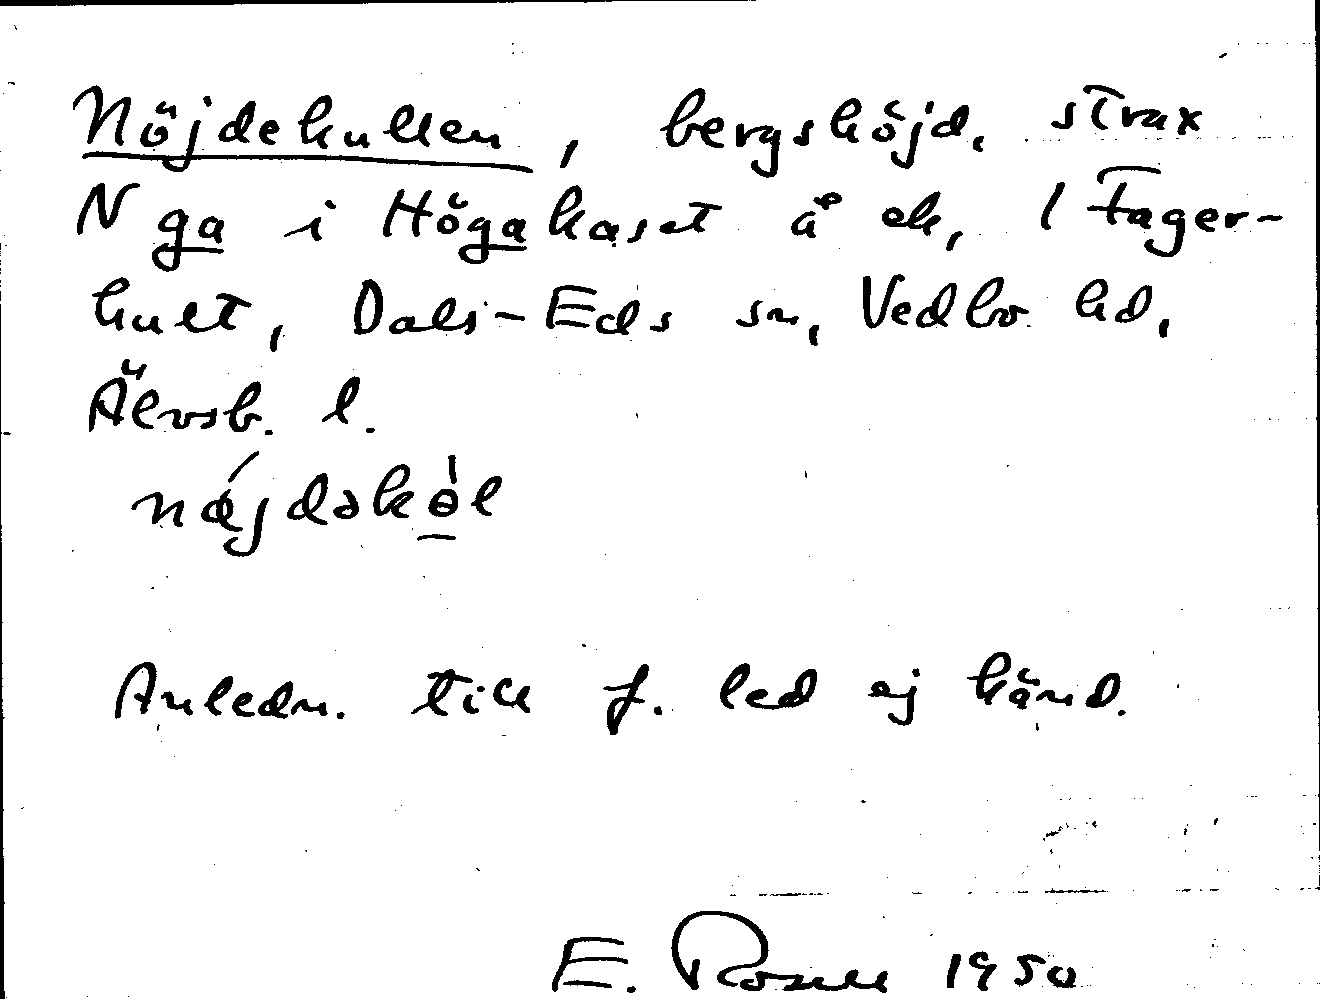 Nöjdekullen, bergshöjd, strax
N ga i Högakaset å ek, 1 Fager-
hult, Dals-Eds sn, Vedbo hd,
Älvsb. l.
Anledn. till f. led ej känd.
E. Rosell 1950